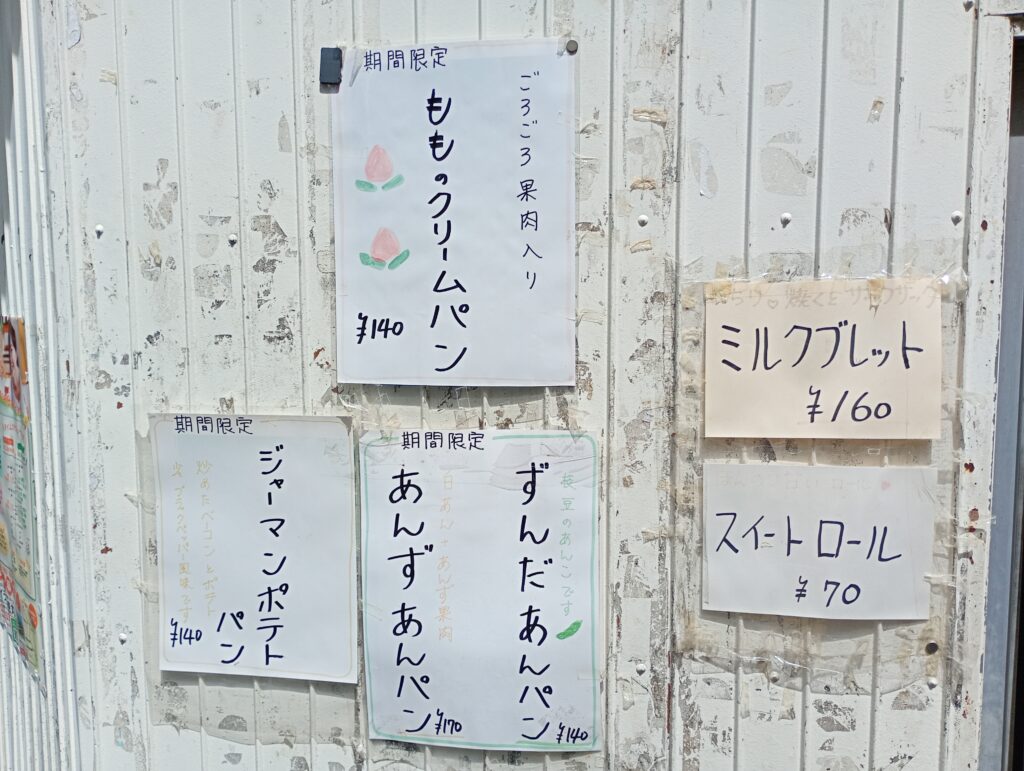 期間限定
ごろごろ果肉入り
もものクリームパン
¥140
期間限定
ジャーマンポテト
パン
炒めたベーコンとポテト
¥140
期間限定
枝豆のあんこです
ずんだあんパン
¥140
白あん+あんず果肉
あんずあんパン
¥170
ミルクブレット
¥160
スイートロール
¥70